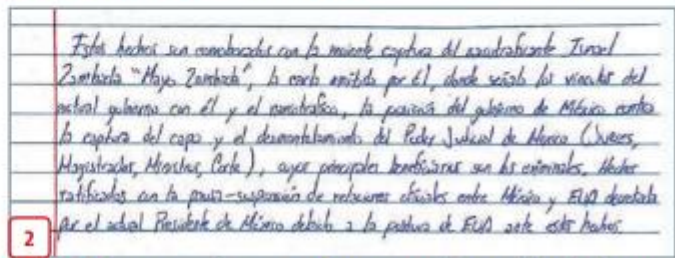 Estos hechos son corroborados con la reciente captura del narcotraficante Ismael
Zambada "Mayo Zambada", la carta emitida por él, donde señala los vínculos del
actual gobierno con él y el narcotráfico, la posición del gobierno de México contra
la captura del capo y el desmantelamiento del Poder Judicial de México (Jueces,
Magistrados, Ministros, Corte), cuyos principales beneficiarios son los criminales. Hechos
ratificados con la pausa-suspensión de relaciones oficiales entre México y EUA decretada
por el actual Presidente de México debido a la postura de EUA ante estos hechos.
2